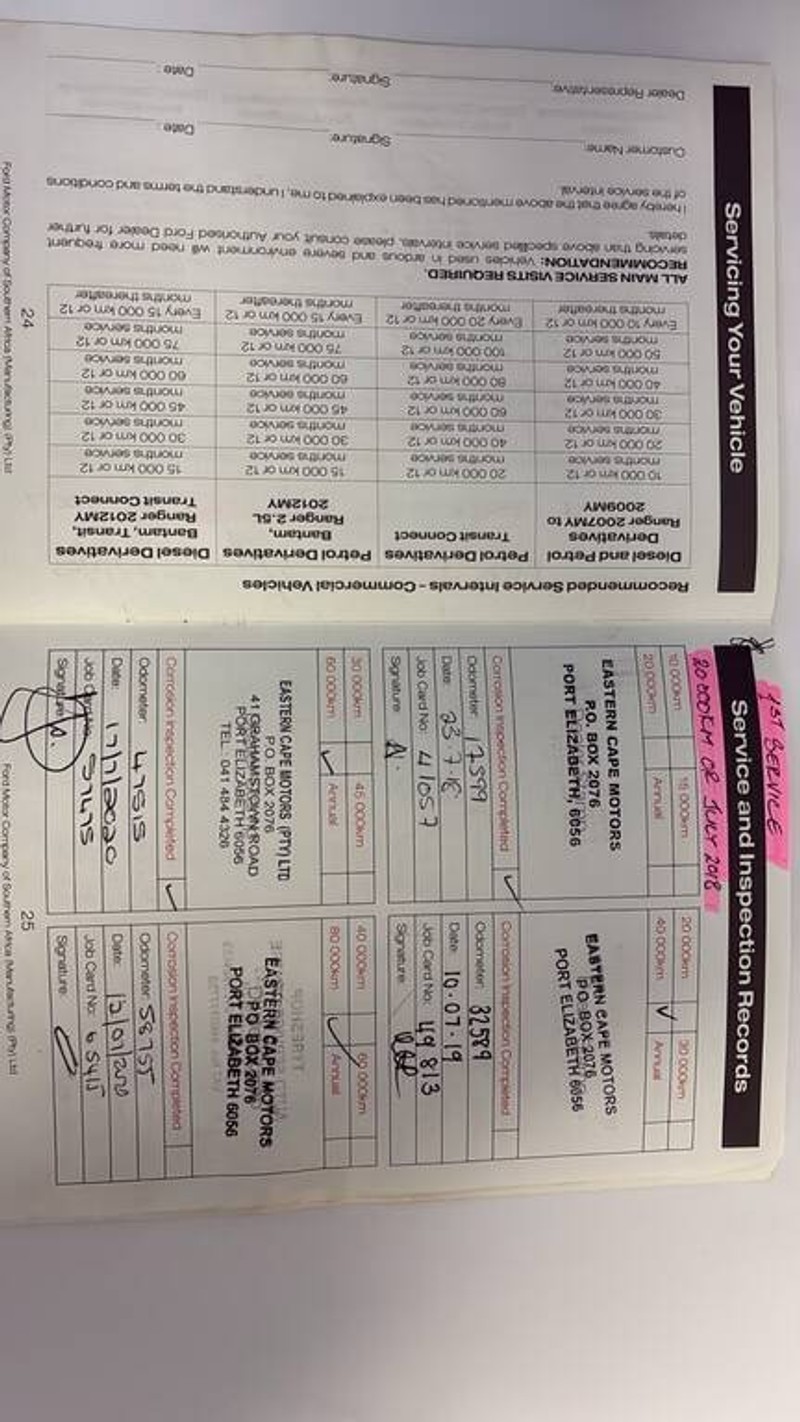 Servicing Your Vehicle
Recommended Service Intervals - Commercial Vehicles
Diesel and Petrol Derivatives Ranger 2007MY to 2009MY
Petrol Derivatives Transit Connect
Petrol Derivatives Bantam, Ranger 2.5L 2012MY
Diesel Derivatives Bantam, Transit, Ranger 2012MY Transit Connect
10 000 km or 12 months service
20 000 km or 12 months service
15 000 km or 12 months service
15 000 km or 12 months service
20 000 km or 12 months service
40 000 km or 12 months service
30 000 km or 12 months service
30 000 km or 12 months service
30 000 km or 12 months service
60 000 km or 12 months service
45 000 km or 12 months service
45 000 km or 12 months service
40 000 km or 12 months service
80 000 km or 12 months service
60 000 km or 12 months service
60 000 km or 12 months service
50 000 km or 12 months service
100 000 km or 12 months service
75 000 km or 12 months service
75 000 km or 12 months service
Every 10 000 km or 12 months thereafter
Every 20 000 km or 12 months thereafter
Every 15 000 km or 12 months thereafter
Every 15 000 km or 12 months thereafter
ALL MAIN SERVICE VISITS REQUIRED.
RECOMMENDATION: vehicles used in ardous and severe environment will need more frequent
servicing than above specified service intervals, please consult your Authorised Ford Dealer for further
details.
I hereby agree that the above mentioned has been explained to me, I understand the terms and conditions
of the service interval.
Customer Name: Signature: Date :
Dealer Representative: Signature: Date :
24
Ford Motor Company of Southern Africa (Manufacturing) (Pty) Ltd
1ST SERVICE
Service and Inspection Records
20 000KM OR JULY 2018
10 000km 15 000km
20 000km Annual
EASTERN CAPE MOTORS
P.O. BOX 2076
PORT ELIZABETH, 6056
Corrosion Inspection Completed ✓
Odometer: 17599
Date: 23.7.18
Job Card No: 41057
Signature:
20 000km 30 000km
40 000km ✓ Annual
EASTERN CAPE MOTORS
P.O. BOX 2076
PORT ELIZABETH 6056
Corrosion Inspection Completed
Odometer: 32589
Date: 10.07.19
Job Card No: 49813
Signature:
30 000km 45 000km
60 000km ✓ Annual
EASTERN CAPE MOTORS (PTY) LTD
P.O. BOX 2076
41 GRAHAMSTOWN ROAD
PORT ELIZABETH 6056
TEL: 041 484 4326
Corrosion Inspection Completed ✓
Odometer: 47515
Date: 17/7/2020
Job Card No: 57475
Signature:
40 000km 60 000km
80 000km ✓ Annual
EASTERN CAPE MOTORS
P O BOX 2076
PORT ELIZABETH 6056
Corrosion Inspection Completed
Odometer: 58755
Job Card No: 65415
Signature:
25
Ford Motor Company of Southern Africa (Manufacturing) (Pty) Ltd